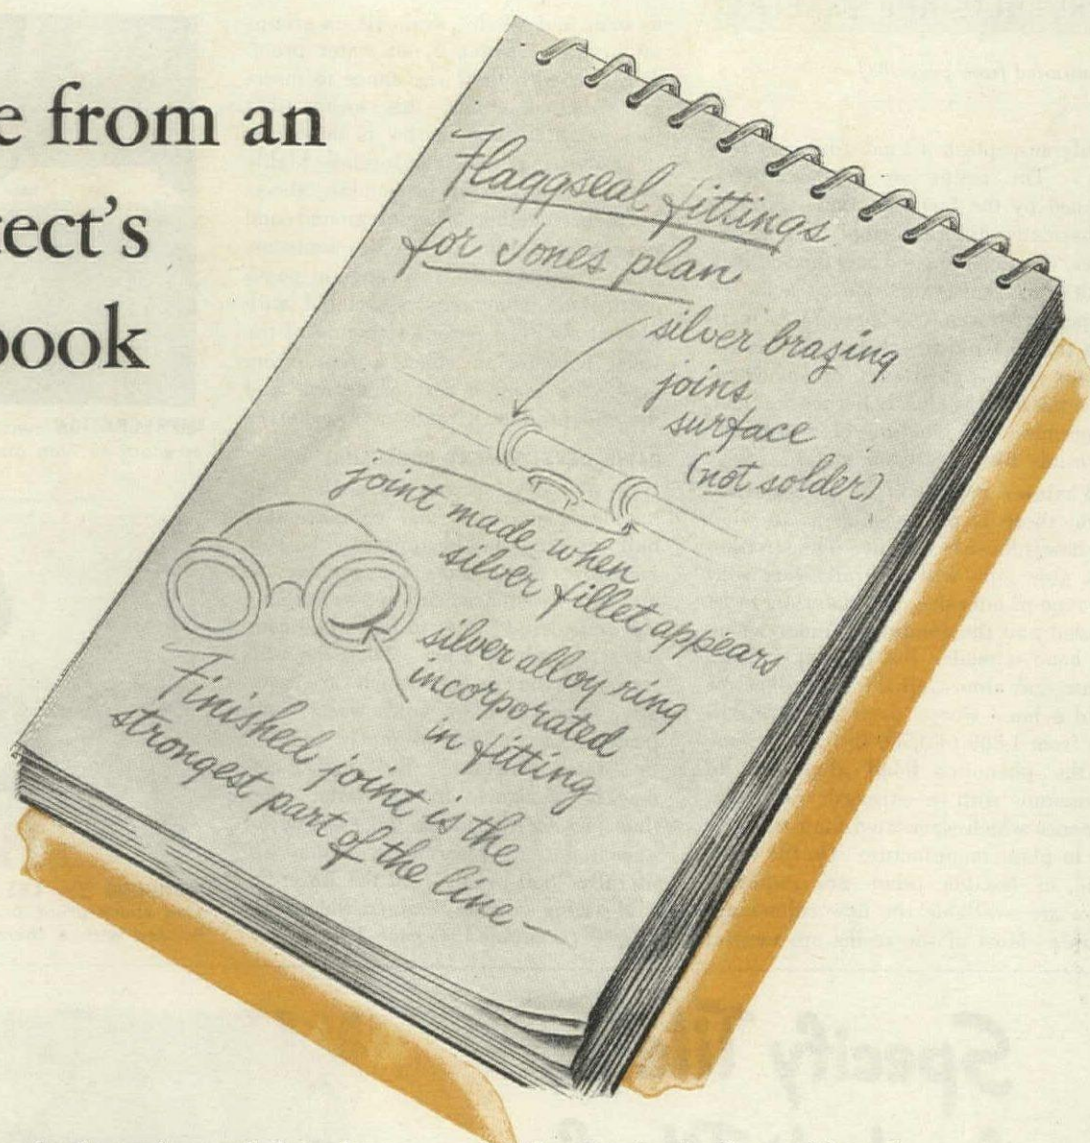 e from an
tect's
book
Flaggseal fittings
for Jones plan
silver brazing
joins
surface
(not solder)
joint made when
silver fillet appears
silver alloy ring
incorporated
in fitting
Finished joint is the
strongest part of the line—